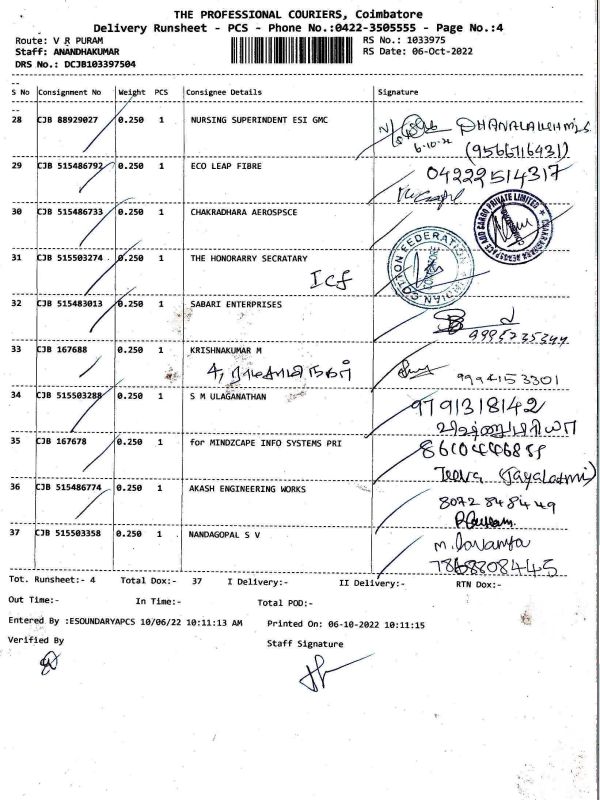 THE PROFESSIONAL COURIERS, Coimbatore
Delivery Runsheet - PCS - Phone No.:0422-3505555 - Page No.:4
Route: V R PURAM
Staff: ANANDHAKUMAR
DRS No.: DCJB103397504
RS No.: 1033975
RS Date: 06-Oct-2022
S No Consignment No Weight PCS Consignee Details Signature
28 CJB 88929027 0.250 1 NURSING SUPERINDENT ESI GMC
6-10-22
(9566716431)
29 CJB 515486792 0.250 1 ECO LEAP FIBRE 04222514317
30 CJB 515486733 0.250 1 CHAKRADHARA AEROSPSCE
CHAKRADHARA AEROSPACE AND CARGO PRIVATE LIMITED
31 CJB 515503274 0.250 1 THE HONORARRY SECRATARY
Icf
INDIAN COTTON FEDERATION
32 CJB 515483013 0.250 1 SABARI ENTERPRISES
9995235344
33 CJB 167688 0.250 1 KRISHNAKUMAR M
9994153301
34 CJB 515503288 0.250 1 S M ULAGANATHAN 9791318142
35 CJB 167678 0.250 1 for MINDZCAPE INFO SYSTEMS PRI
(Jayalaxmi)
36 CJB 515486774 0.250 1 AKASH ENGINEERING WORKS 8072848449
37 CJB 515503358 0.250 1 NANDAGOPAL S V m. Lavanya
Tot. Runsheet:- 4 Total Dox:- 37 I Delivery:- II Delivery:- RTN Dox:-
Out Time:- In Time:- Total POD:-
Entered By :ESOUNDARYAPCS 10/06/22 10:11:13 AM Printed On: 06-10-2022 10:11:15
Verified By Staff Signature